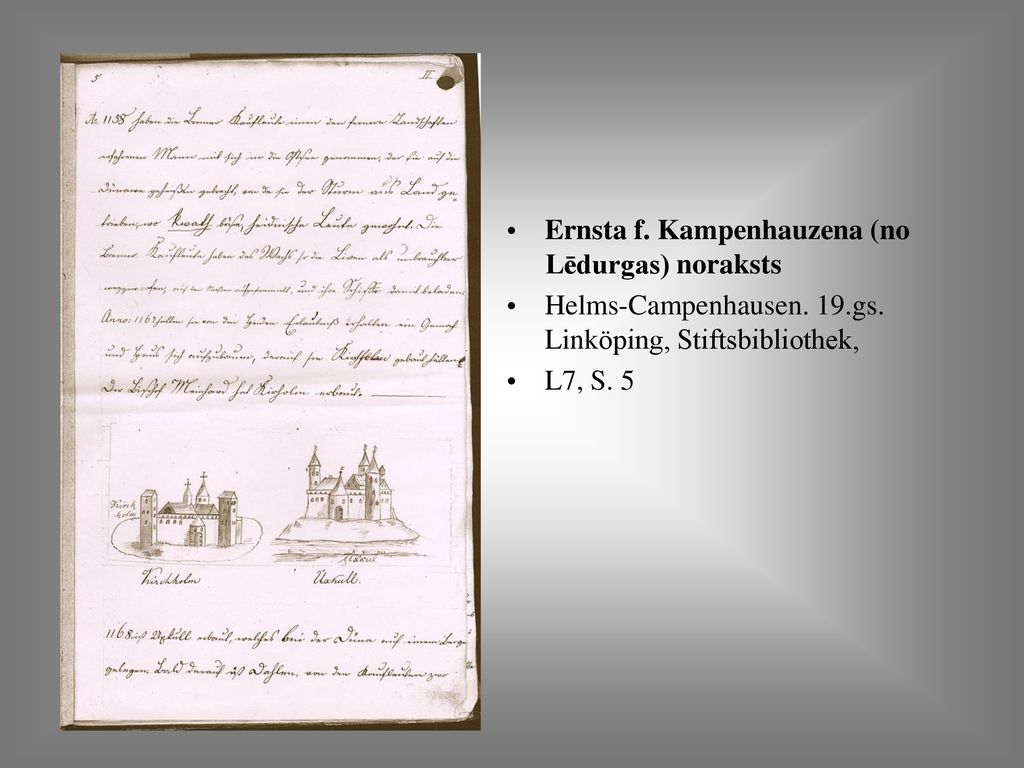 5 II
Ao 1158 haben die Bremer Kaufleute einen den fernere Landschaften
erfahrenen Mann mit sich in die Ostsee genommen, der sie auf die
gebracht, von da sie der Sturm aus Land ge-
trieben, wo böse, heidnische Leute gewohnt. Die
Bremer Kaufleute haben das Wachs so die Liven als unbrauchbar
weggeworfen, auf den und ihre Schiffe damit beladen
Anno: 1167 hatten sie von den Heiden Erlaubniß erhalten ein Gemach
und Haus sich aufzubauen, darauf sie Kirchholm gebaut hatten
Der Bischof Meinhard hat Kirholm erbaut.
Kirch
holm
Uxkul
Kirchholm Uxkull.
1168 ist Uxkull erbaut, welches bei der Düna auf einem Berge
gelegen. Bald darauf ist Dahlen, von den Kaufleuten zwo
• Ernsta f. Kampenhauzena (no
Lēdurgas) noraksts
• Helms-Campenhausen. 19.gs.
Linköping, Stiftsbibliothek,
• L7, S. 5